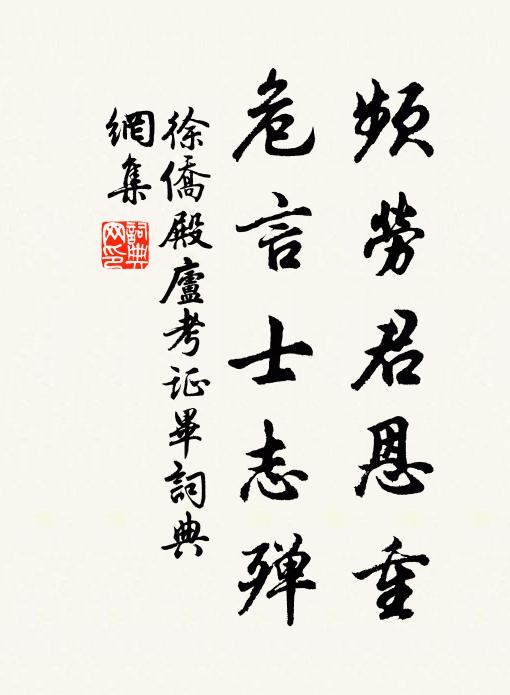 頻勞君恩重
危言士志殫
徐僑殿廬考证畢詞典
網集
詞典网印